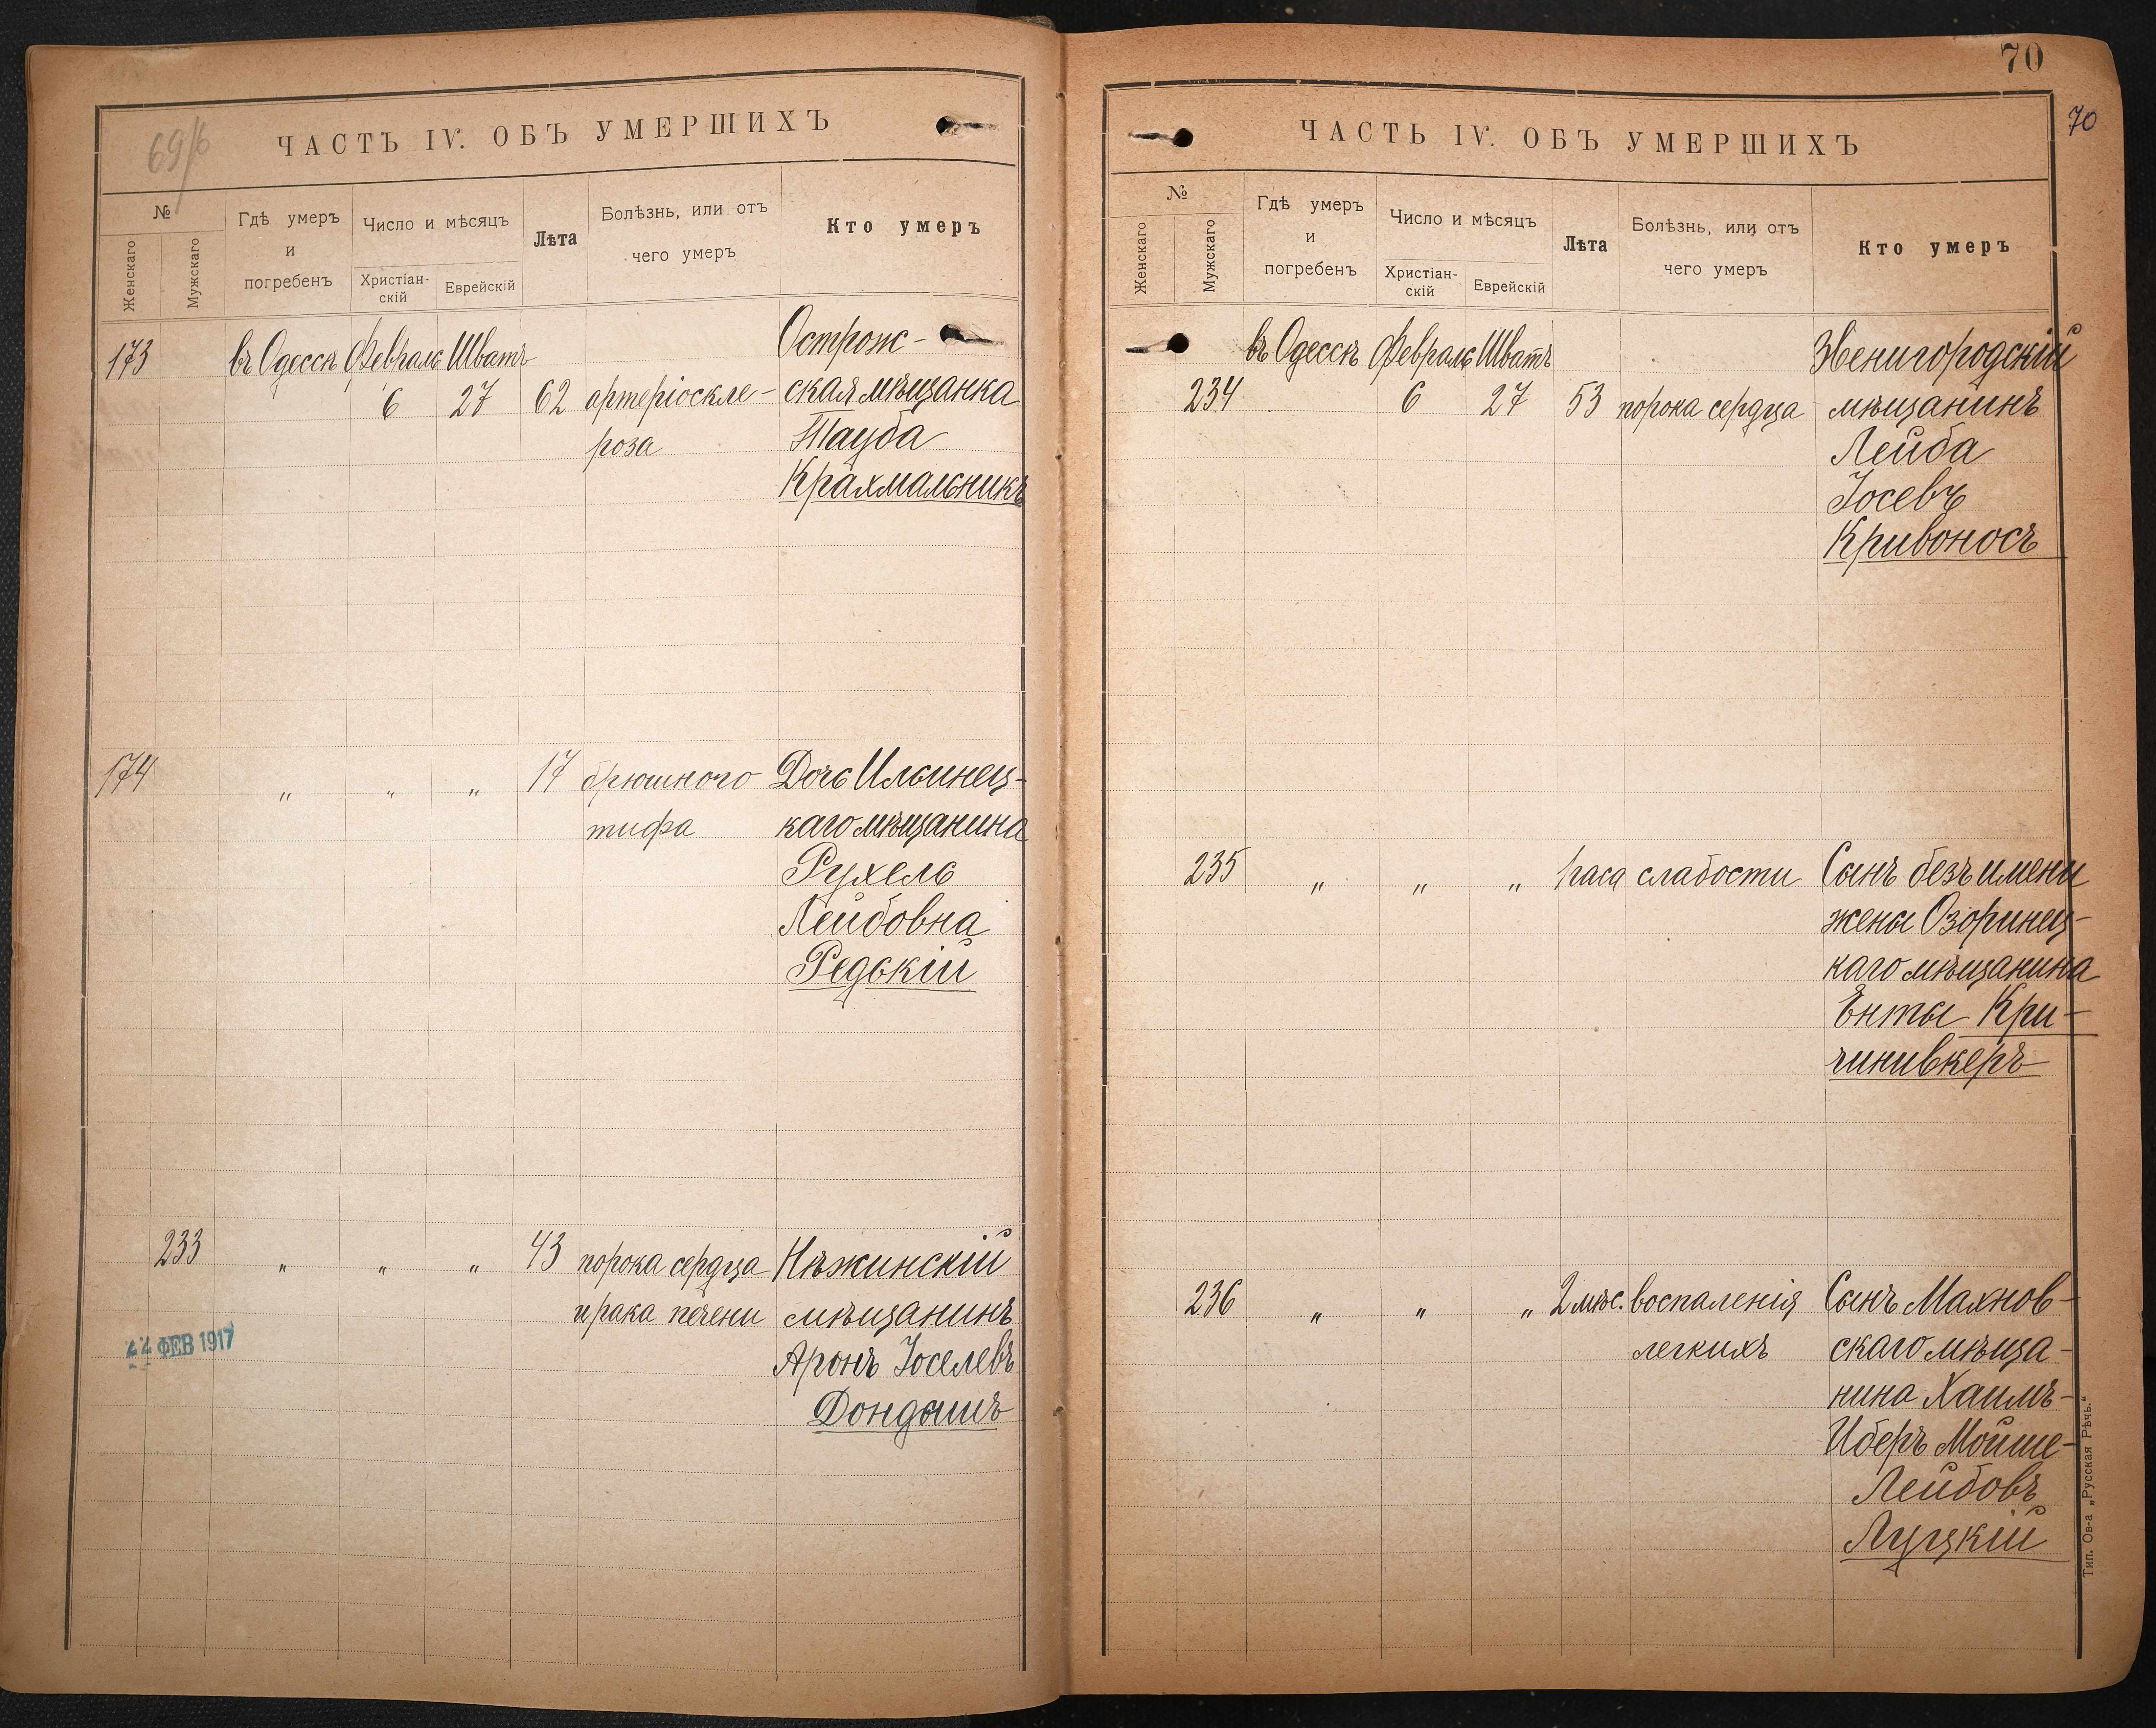 69/б
ЧАСТЬ IV. ОБЪ УМЕРШИХЪ
№
Женскаго
Мужскаго
Гдѣ умеръ
и
погребенъ
Число и мѣсяцъ
Христіан-
скій
Еврейскій
Лѣта
Болѣзнь, или отъ
чего умеръ
Кто умеръ
173 въ Одессѣ Февраль Шватъ Острож-
6 27 62 артеріоскле- ская мѣщанка
роза Тауба
Крахмальникъ
174 " " " 17 брюшного Дочь Ильинец-
тифа каго мѣщанина
Рухель
Лейбовна
Редскій
233 " " " 43 порока сердца Нѣжинскій
и рака печени мѣщанинъ
22 ФЕВ 1917
Аронъ Іоселевъ
Дондышъ
70
70
ЧАСТЬ IV. ОБЪ УМЕРШИХЪ
№
Женскаго
Мужскаго
Гдѣ умеръ
и
погребенъ
Число и мѣсяцъ
Христіан-
скій
Еврейскій
Лѣта
Болѣзнь, или отъ
чего умеръ
Кто умеръ
въ Одессѣ Февраль Шватъ Звенигородскій
234 6 27 53 порока сердца мѣщанинъ
Лейба
Іосевъ
Кривоносъ
235 " " " 1 часа слабости Сынъ безъ имени
жены Озоринец-
каго мѣщанина
Енты Кри-
чинивкеръ
236 " " " 2 мѣс. воспаленія Сынъ Махнов-
легкихъ скаго мѣща-
нина Хаимъ-
Иберъ Мойше-
Лейбовъ
Луцкій
Тип. Ов-а „Русская Рѣчь."